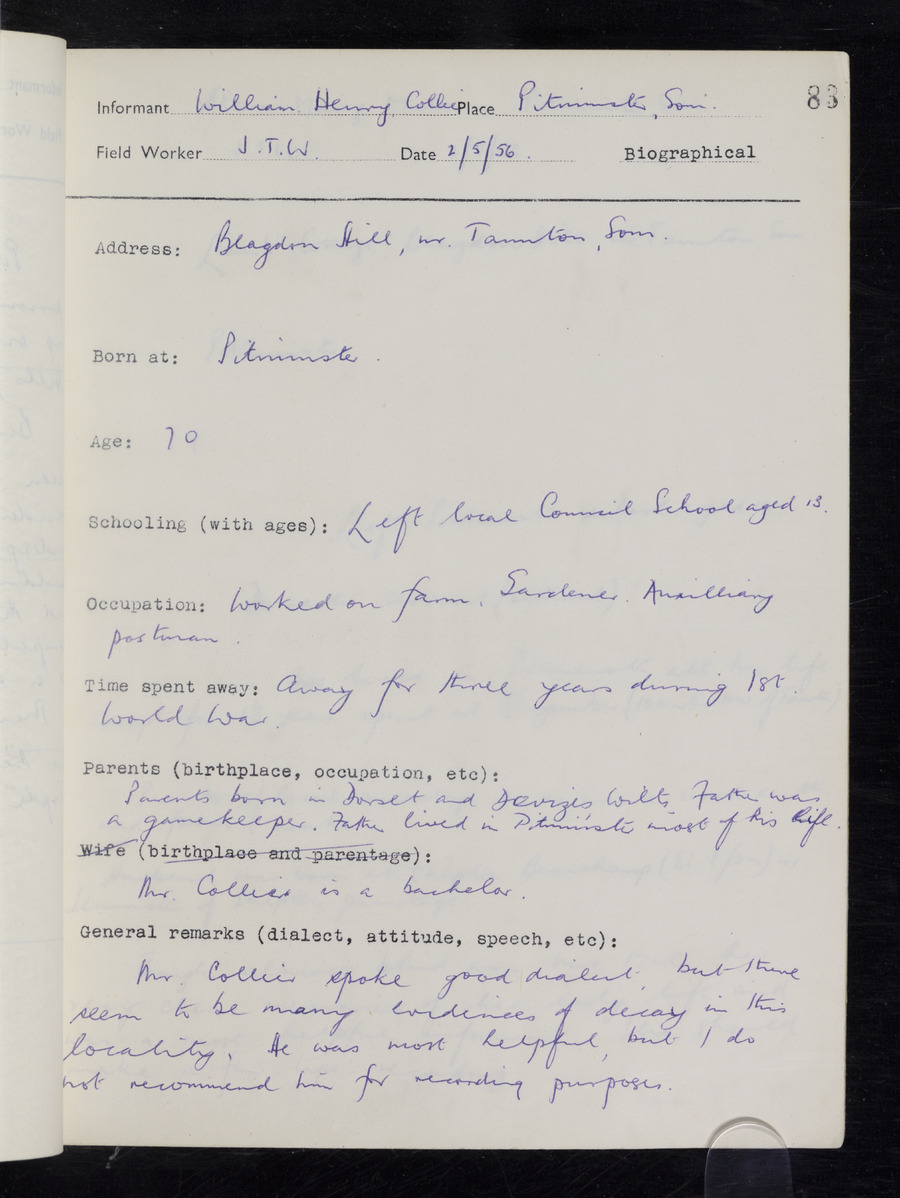 Informant William Henry Collier Place Pitminster, Som. 83
Field Worker J.T.W. Date 2/5/56. Biographical
Address: Blagdon Hill, nr. Taunton, Som.
Born at: Pitminster.
Age: 70
Schooling (with ages): Left local Council School aged 13.
Occupation: Worked on farm. Gardener. Auxilliary
postman.
Time spent away: Away for three years during 1st.
World War.
Parents (birthplace, occupation, etc):
Parents born in Dorset and Devizes, Wilts. Father was
a gamekeeper. Father lived in Pitminster most of his life.
Wife (birthplace and parentage):
Mr. Collier is a bachelor.
General remarks (dialect, attitude, speech, etc):
Mr. Collier spoke good dialect, but there
seem to be many evidences of decay in this
locality. He was most helpful, but I do
not recommend him for recording purposes.